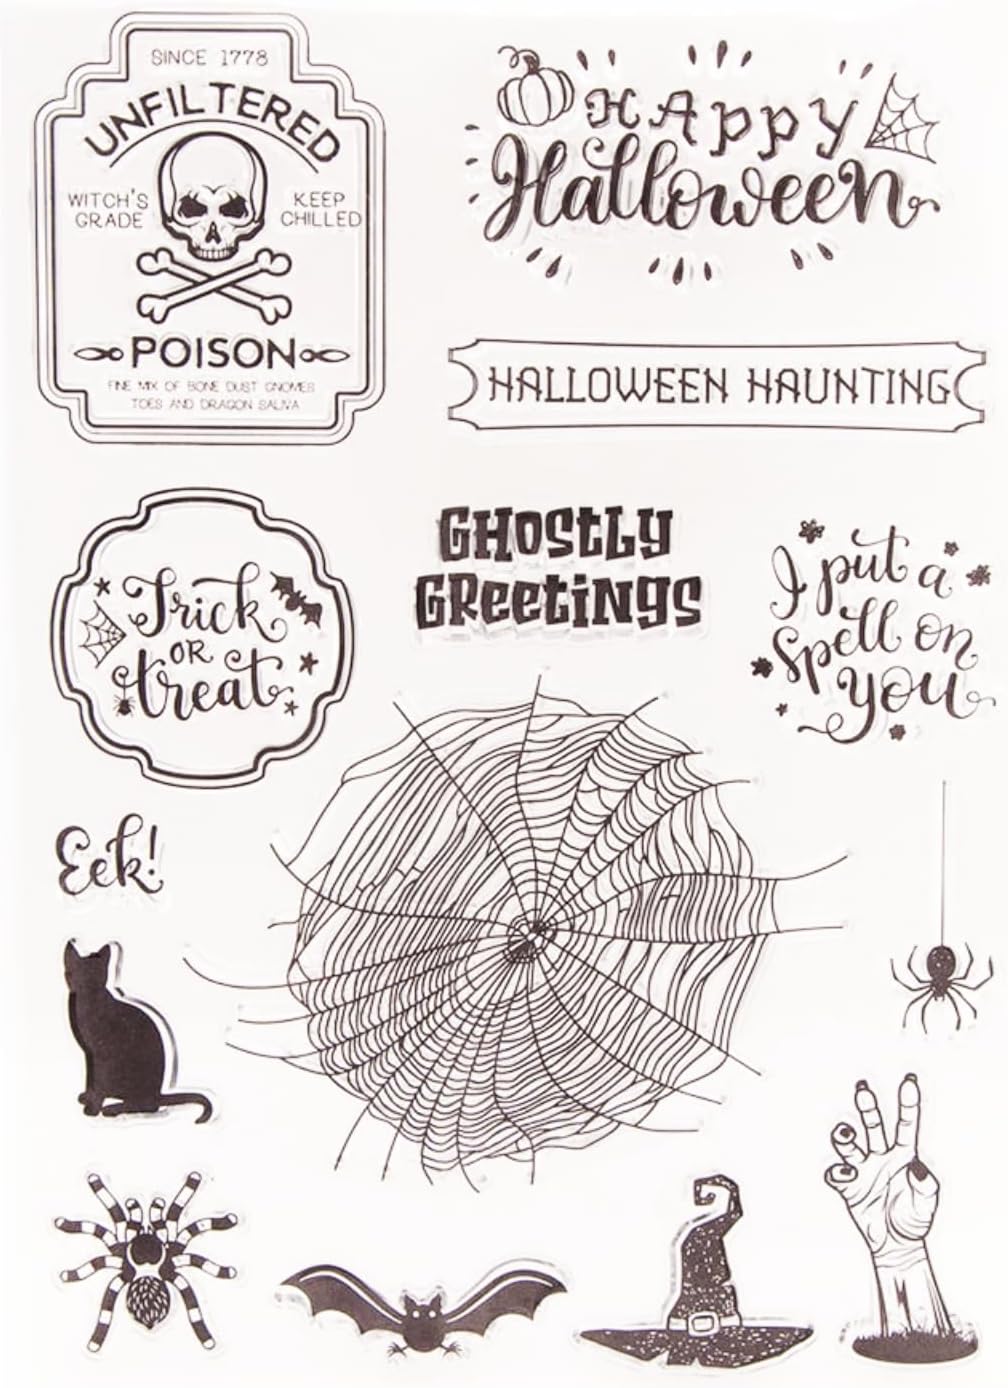 SINCE 1778
UNFILTERED
WITCH'S
GRADE
KEEP
CHILLED
POISON
FINE MIX OF BONE DUST GNOMES
TOES AND DRAGON SALIVA
HAppy
Halloween
HALLOWEEN HAUNTING
Trick
OR
treat
GHOSTLY
GREETINGS
I put a
spell on
you
Eek!